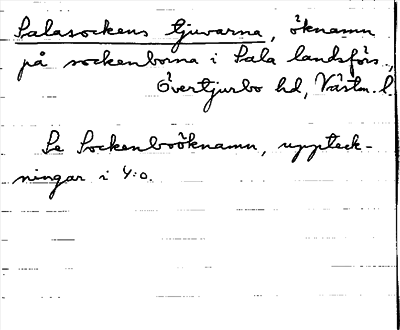 Salasockens tjuvarna, öknamn
på sockenborna i Sala landsförs.,
Övertjurbo hd, Västm. l.
Se Sockenboöknamn, uppteck-
ningar i 4:o.